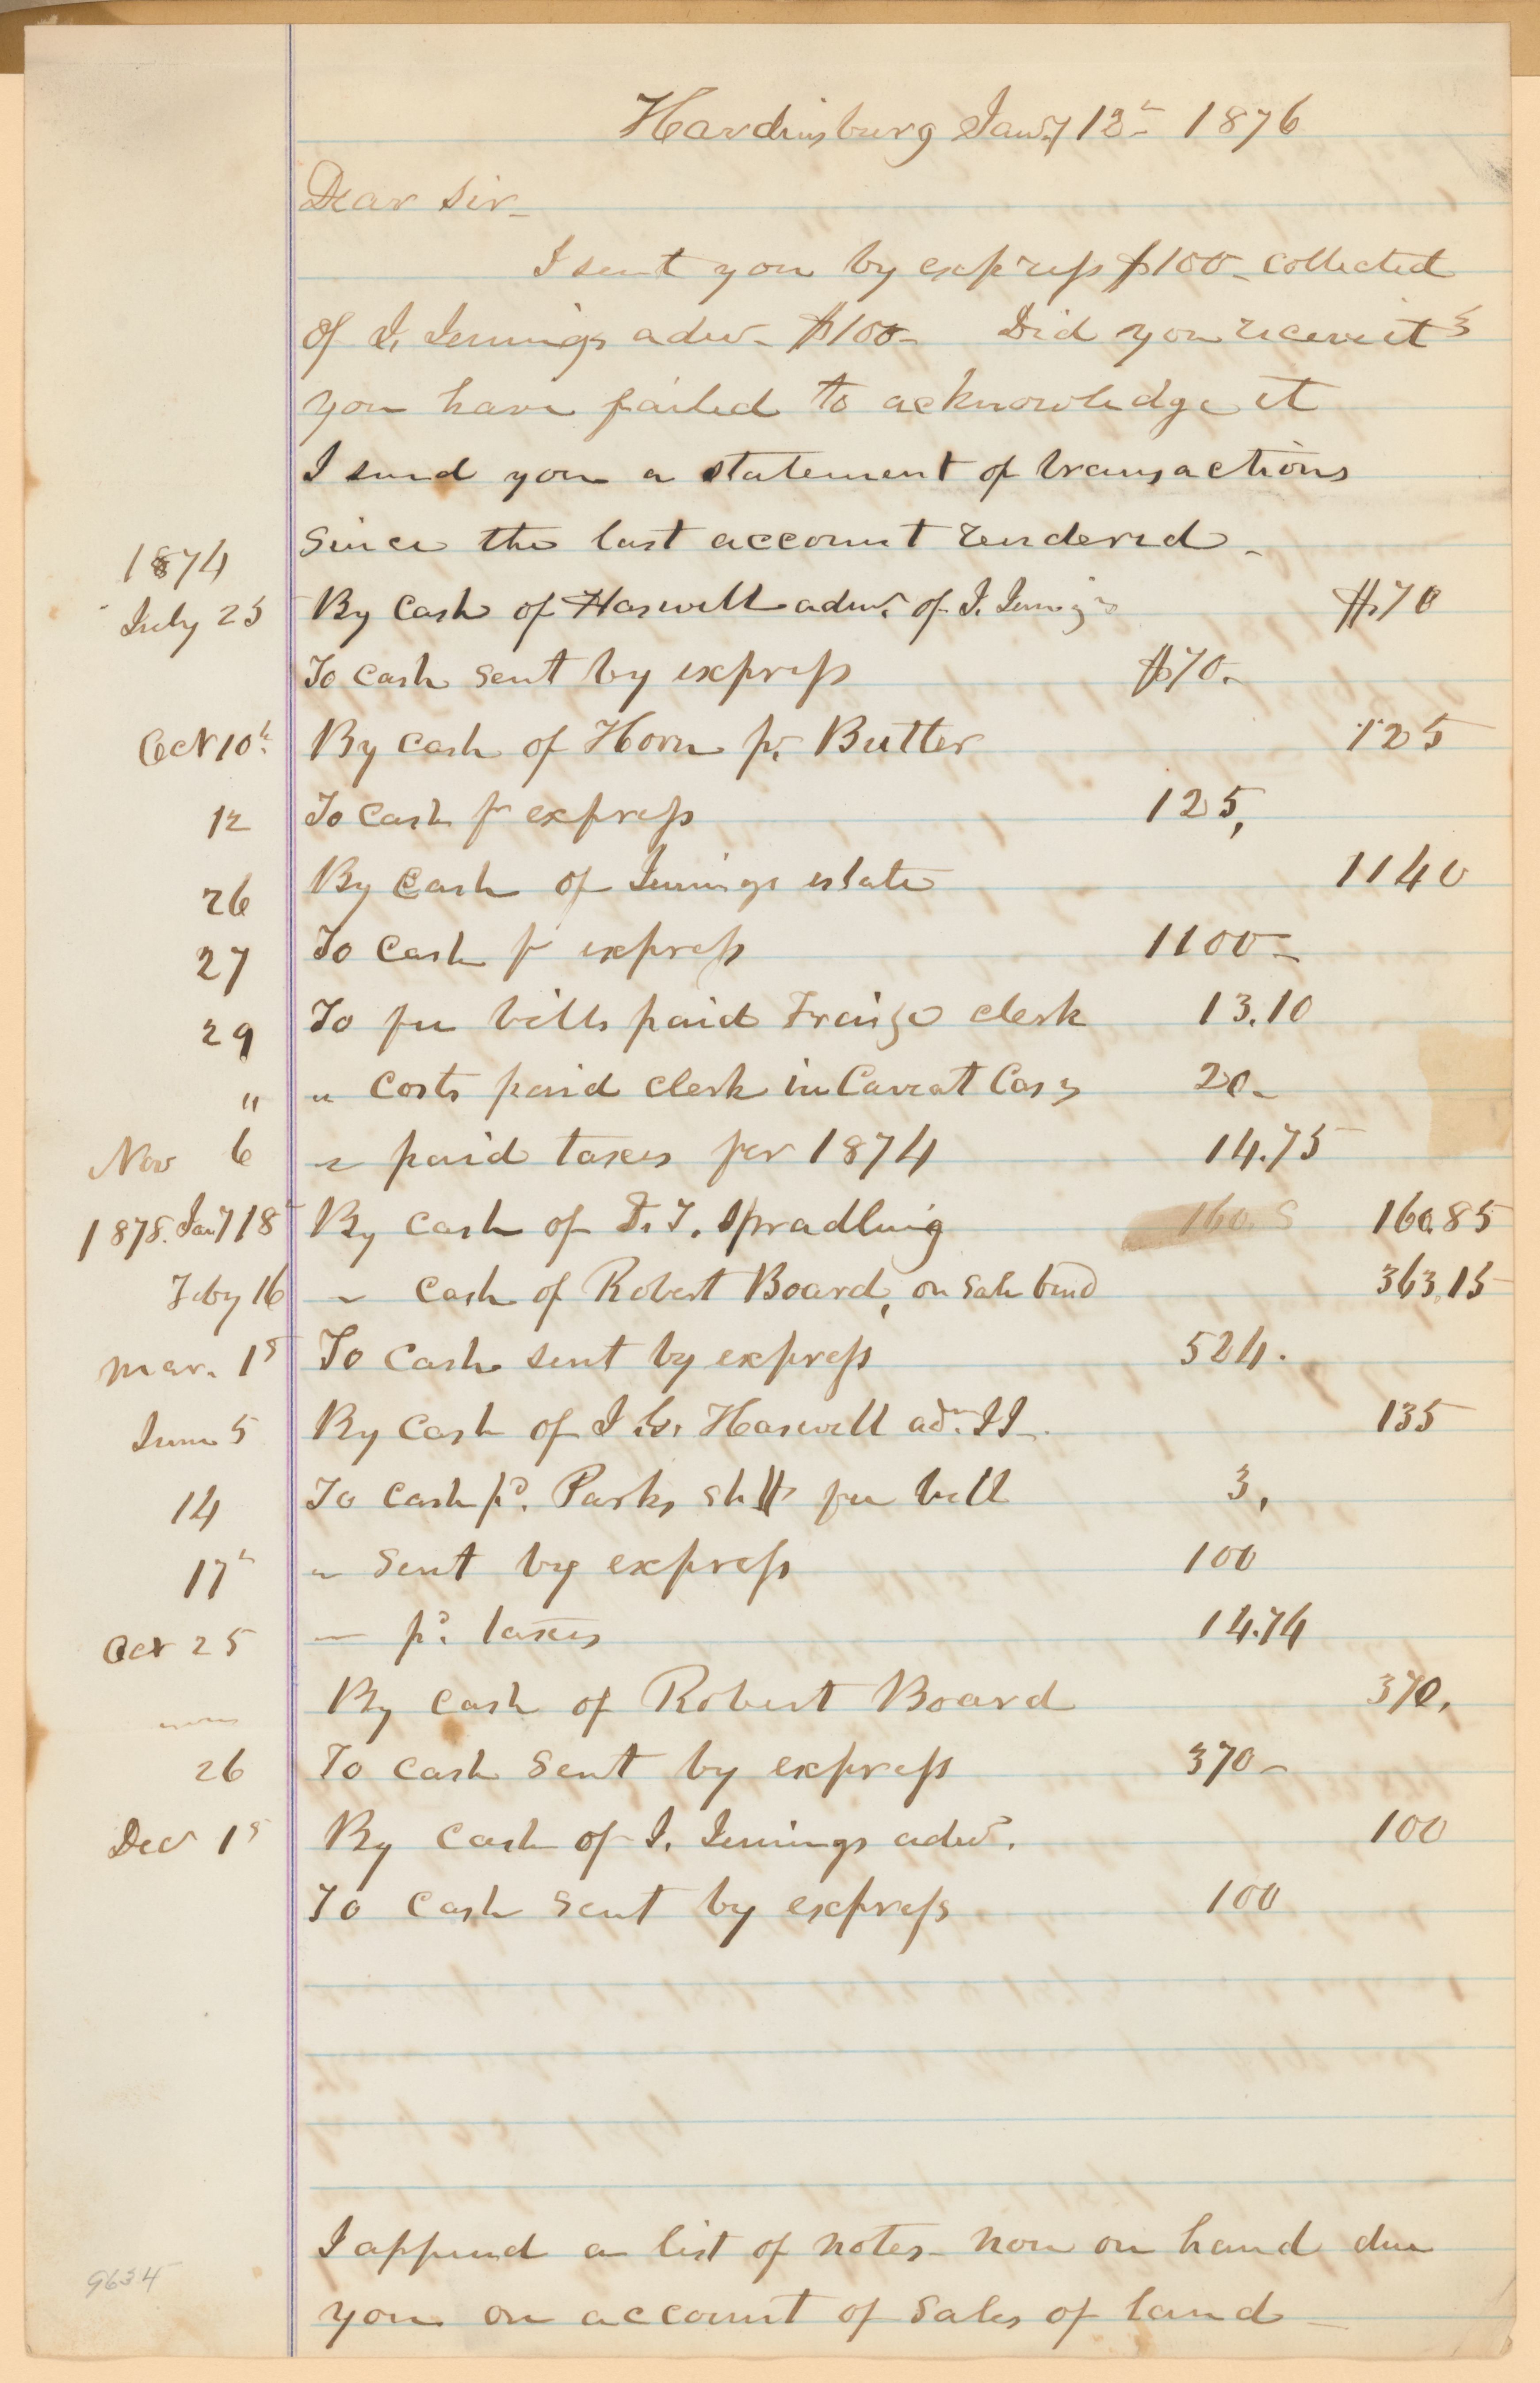 Hardinsburg Jany 12th 1876
Dear Sir_
I sent you by express $100_ collected
of I. Jennings adm_ $100_ Did you receive it?
you have failed to acknowledge it
I send you a statement of transactions
since the last account rendered_
1874
July 25 By Cash of Haswell admr of I. Jennings $70
To cash sent by express $70.
Oct 10th By cash of Horn pr Butter 125
12 To Cash pr express 125,
26 By Cash of Jennings estate 1140
27 To Cash pr express 1100_
29 To fee bills paid Fraize clerk 13.10
" " Costs paid clerk in Caveat Cases 20_
Nov 6 " paid taxes for 1874 14.75
1875. Jany 18 By cash of T. Spradling 160.85
Feby 16 " Cash of Robert Board, on sale bond 363.15
Mar. 1st To Cash sent by express 524.
June 5 By Cash of I. G. Haswell adm. I I 135
14 To Cash pd. Parks shff fee bill 3,
17th " Sent by express 100
Oct 25 — pd. taxes 14.74
By cash of Robert Board 370,
26 To cash sent by express 370_
Dec 1st By cash of I. Jennings admr. 100
To cash sent by express 100
I append a list of notes_ now on hand due
you on account of sales of land_
9634